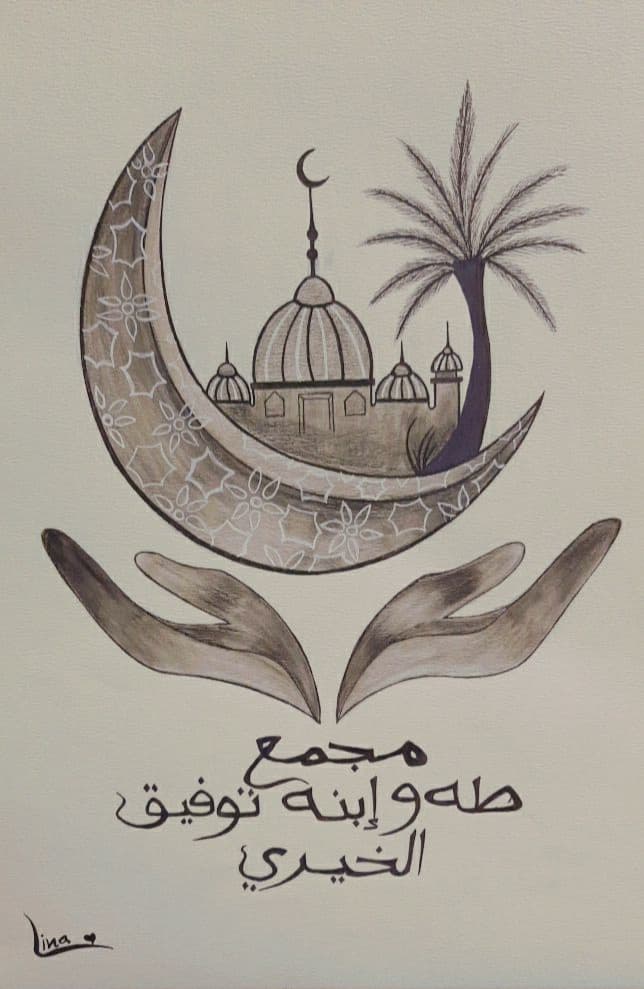 مجمع
طه و إبنه توفيق
الخيري
Lina